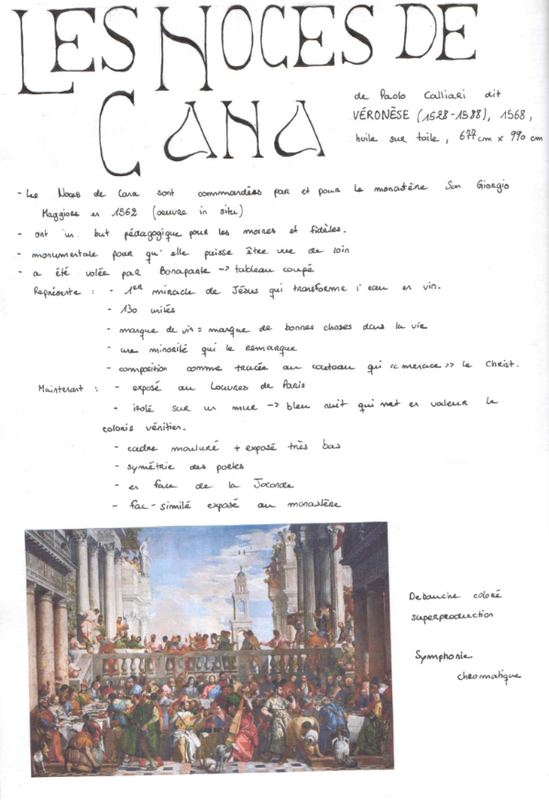 LES NOCES DE
CANA
de Paolo Calliari dit
VÉRONÈSE (1528-1588), 1568,
huile sur toile, 677 cm x 990 cm
- Les Noces de Cana sont commandées par et pour le monastère San Giorgio
Maggiore en 1562 (oeuvre in situ)
- ont un but pédagogique pour les moines et fidèles.
- monumentale pour qu'elle puisse être vue de loin
- a été volée par Bonaparte -> tableau coupé
Représente : - 1er miracle de Jésus qui transforme l'eau en vin.
- 130 invités
- manque de vin = manque de bonnes choses dans la vie
- une minorité qui le remarque
- composition comme tracée au couteau qui << menace >> le Christ.
Maintenant : - exposé au Louvres de Paris
- isolé sur un mur -> bleu nuit qui met en valeur le
coloris vénitien.
- cadre mouluré + exposé très bas
- symétrie des portes
- en face de la Joconde
- fac-similé exposé au monastère
Debauche coloré
superproduction
Symphonie
chromatique